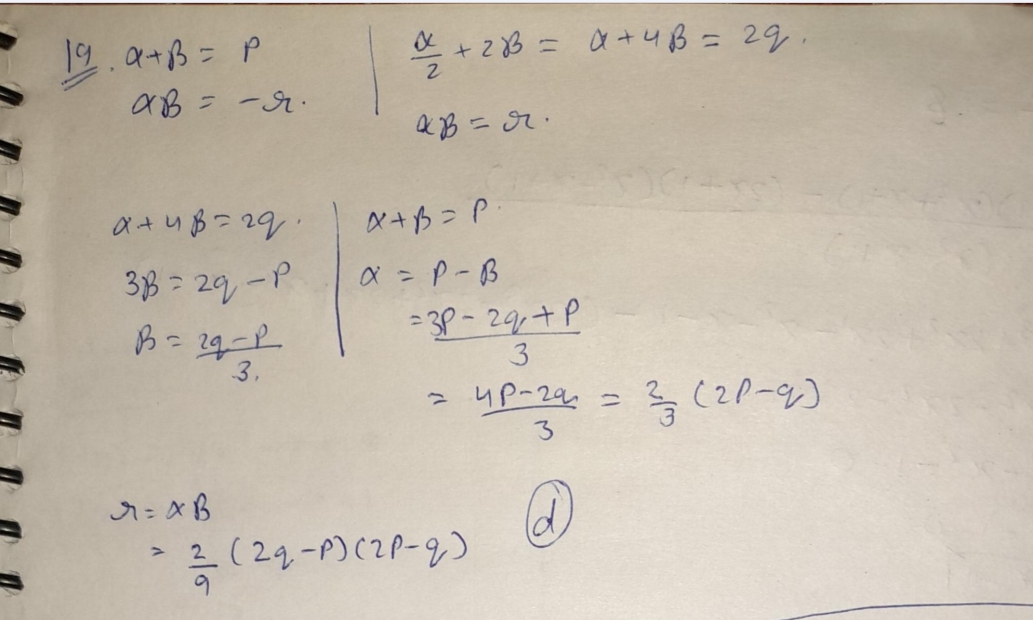 19. α+β = P
αβ = -r.
α/2 + 2β = α+4β = 2q.
αβ = r.
α+4β = 2q.
3β = 2q - P
β = (2q-P)/3.
α+β = P.
α = P - β
= (3P - 2q + P)/3
= (4P-2q)/3 = 2/3 (2P-q)
r = αβ
= 2/9 (2q-P)(2P-q)
d